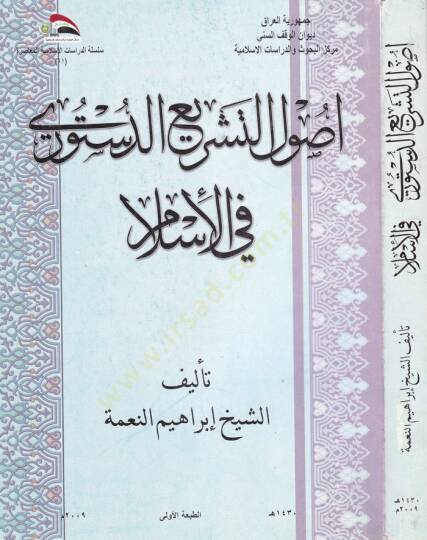 جمهورية العراق
ديوان الوقف السني
مركز البحوث والدراسات الاسلامية
سلسلة الدراسات الإسلامية المعاصرة
(١١)
اصول التشريع الدستوري
في الأسلام
تأليف
الشيخ إبراهيم النعمة
١٤٣٠هـ
الطبعة الأولى
٢٠٠٩م
اصول التشريع الدستوري
في الأسلام
تأليف الشيخ إبراهيم النعمة
١٤٣٠هـ
٢٠٠٩م
www.irsad.com.tr